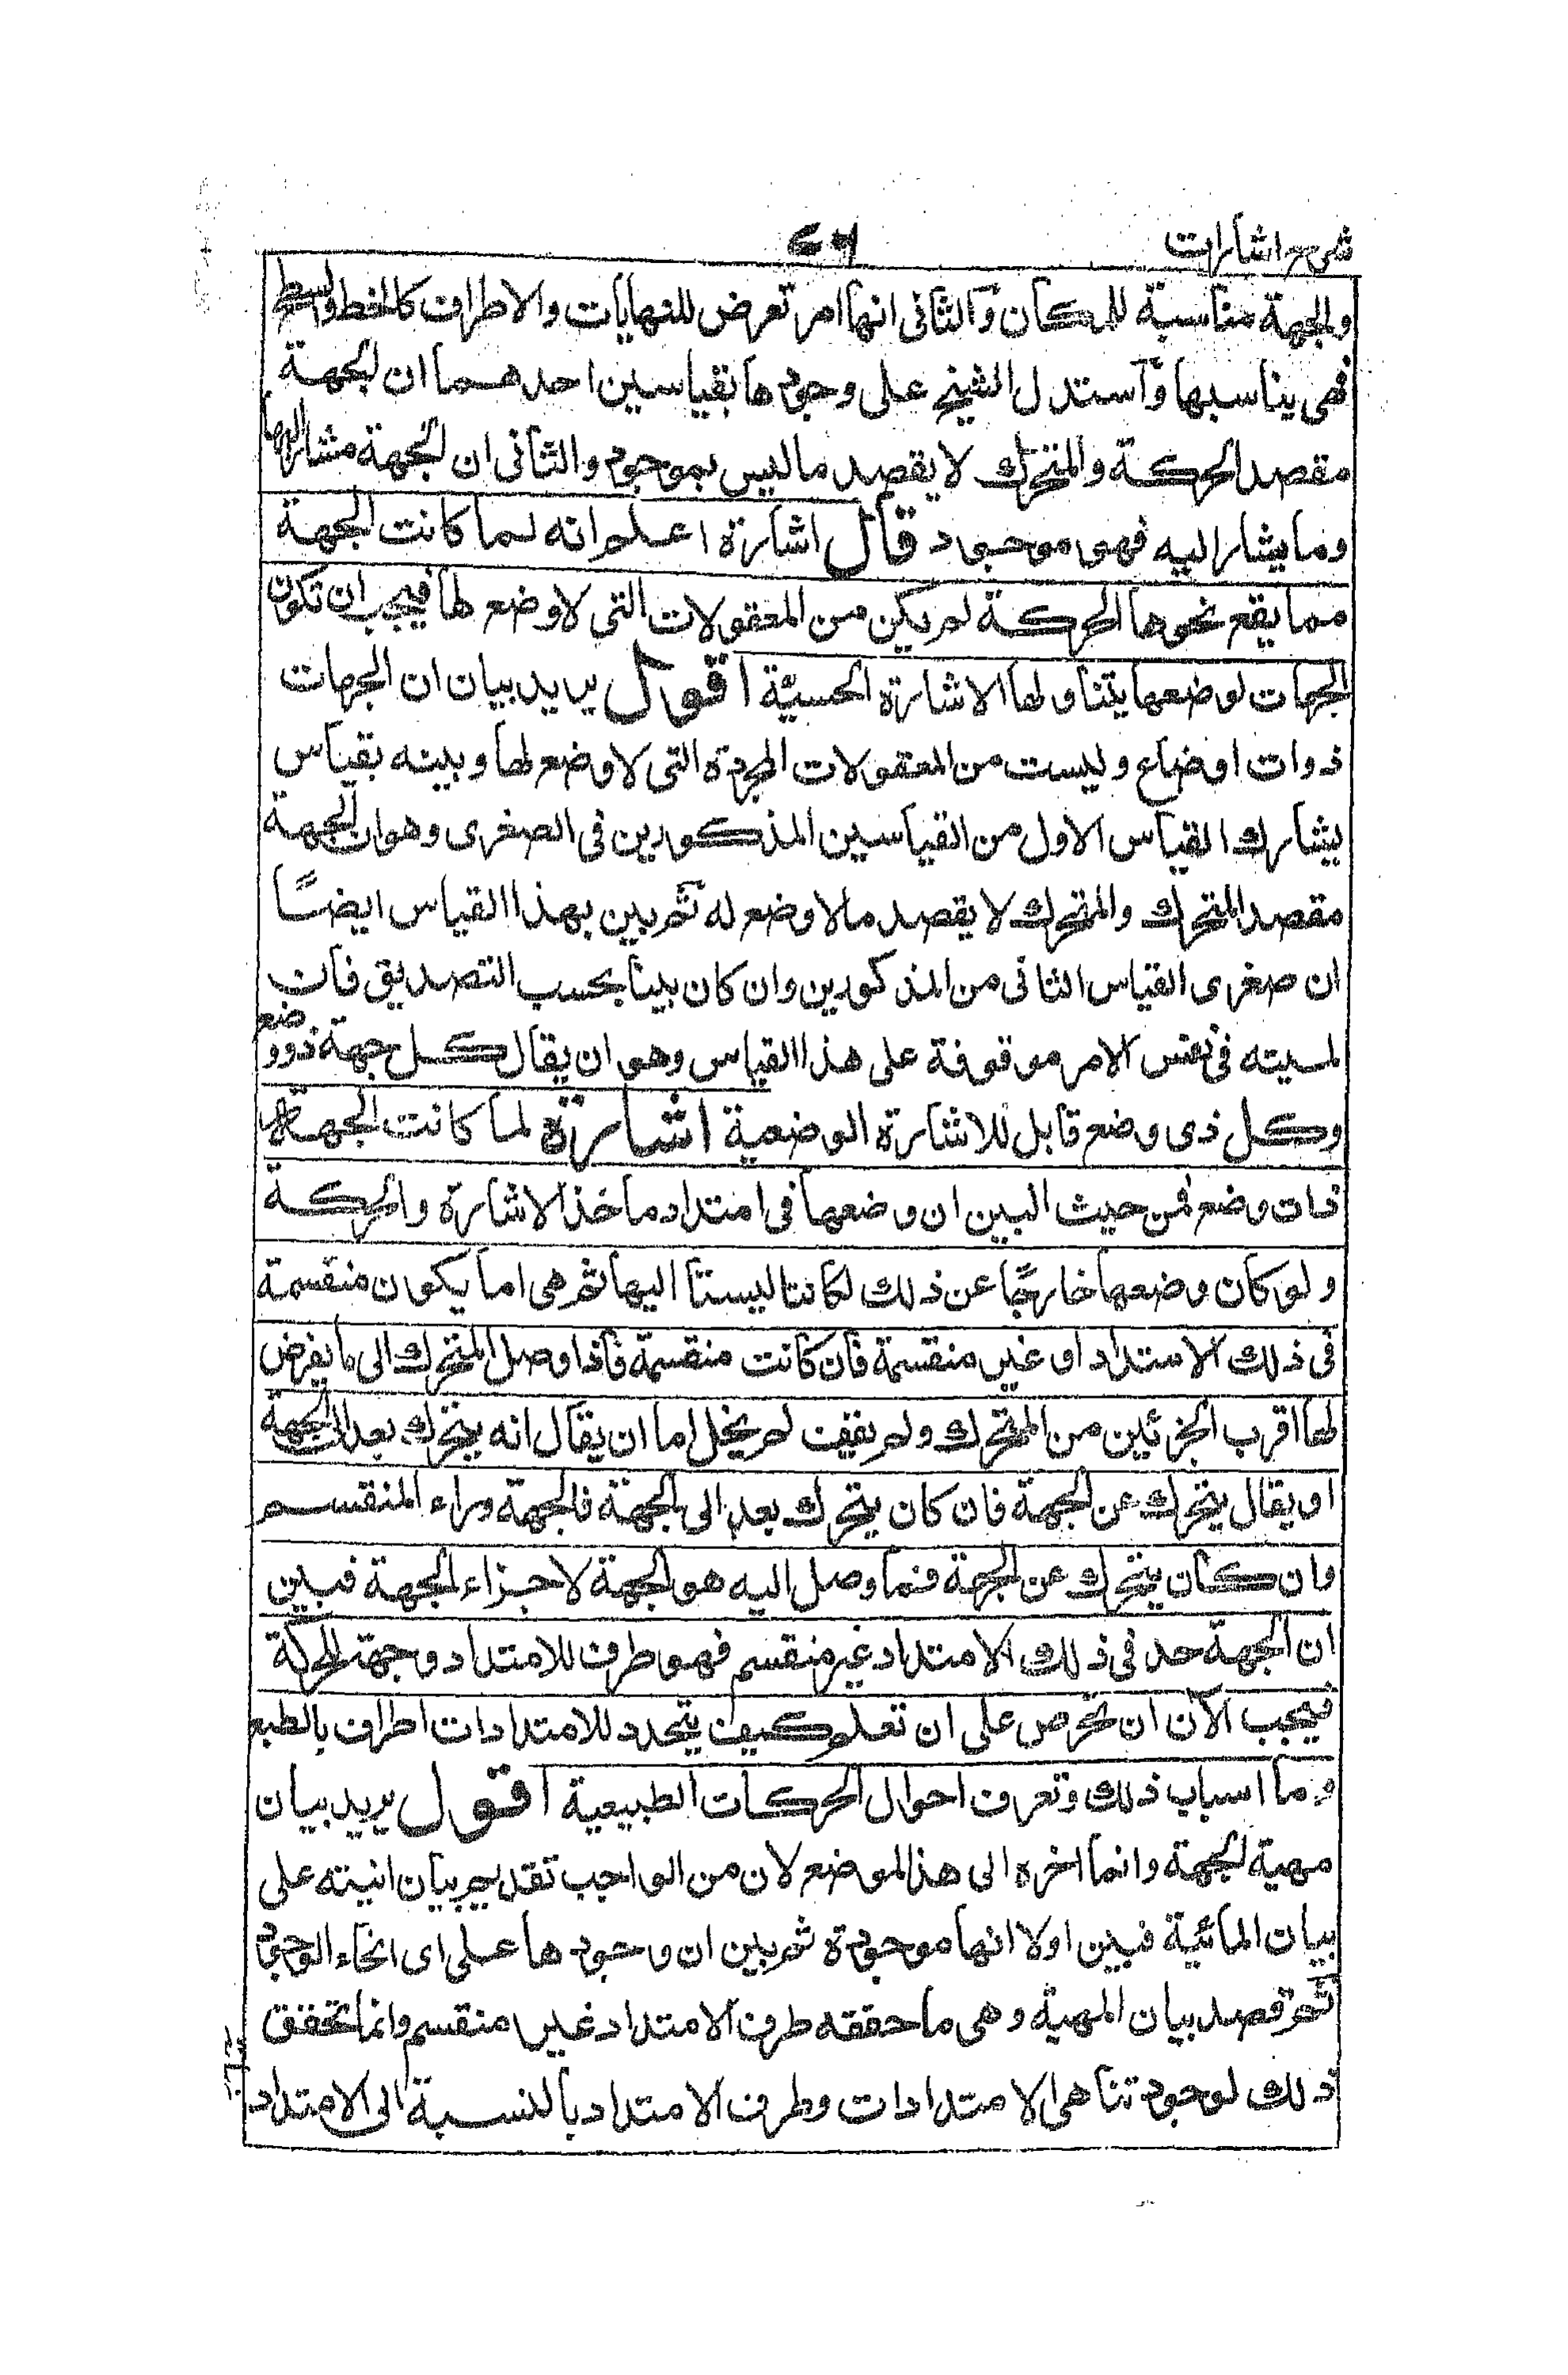 شرح اشارات
٧٦
والجهة مناسبة للمكان والثانى انها امر تعرض للنهايات والاطراف كالخط والسطح
فهى يناسبها واستدل الشيخ على وجودها بقياسين احدهما ان الجهة
مقصد الحركة والمتحرك لا يقصد ما ليس بموجود والثانى ان الجهة مشار اليها
وما يشار اليه فهو موجود قال اشارة اعلم انه لما كانت الجهة
مما يقع نحوها الحركة لم يكن من المعقولات التى لا وضع لها فيجب ان تكون
الجهات لوضعها يتناولها الاشارة الحسية اقول يريد بيان ان الجهات
ذوات اوضاع وليست من المعقولات المجردة التى لا وضع لها وبينه بقياس
يشارك القياس الاول من القياسين المذكورين فى الصغرى وهو ان الجهة
مقصد المتحرك والمتحرك لا يقصد ما لا وضع له ثم بين بهذا القياس ايضًا
ان صغرى القياس الثانى من المذكورين وان كان بينا بحسب التصديق فان
لميته فى نفس الامر موقوفة على هذا القياس وهو ان يقال كل جهة ذو وضع
وكل ذى وضع قابل للاشارة الوضعية اشارة لما كانت الجهة
ذات وضع فمن حيث البين ان وضعها فى امتداد ماخذ الاشارة والحركة
ولو كان وضعها خارجًا عن ذلك لكانتا ليستا اليها ثم هى اما يكون منقسمة
فى ذلك الامتداد او غير منقسمة فان كانت منقسمة فاذا وصل المتحرك الى ما يفرض
لها اقرب الجزئين من المتحرك ولم يقف لم يخل اما ان يقال انه يتحرك بعد الى الجهة
او يقال يتحرك عن الجهة فان كان يتحرك بعد الى الجهة فالجهة وراء المنقسم
وان كان يتحرك عن الجهة فما وصل اليه هو الجهة لا جزاء الجهة فبين
ان الجهة حد فى ذلك الامتداد غير منقسم فهو طرف للامتداد وجهة للحركة
فيجب الان ان تحرص على ان تعلم كيف يتحدد للامتدادات اطراف بالطبع
وما اسباب ذلك وتعرف احوال الحركات الطبيعية اقول يريد بيان
مهية الجهة وانما اخره الى هذا الموضع لان من الواجب تقديم بيان انيته على
بيان المائية فبين اولا انها موجودة ثم بين ان وجودها على اى انحاء الوجود
ثم قصد بيان المهية وهى ما حققه طرف الامتداد غير منقسم وانما تحقق
ذلك لوجود تناهى الامتدادات وطرف الامتداد بالنسبة الى الامتداد